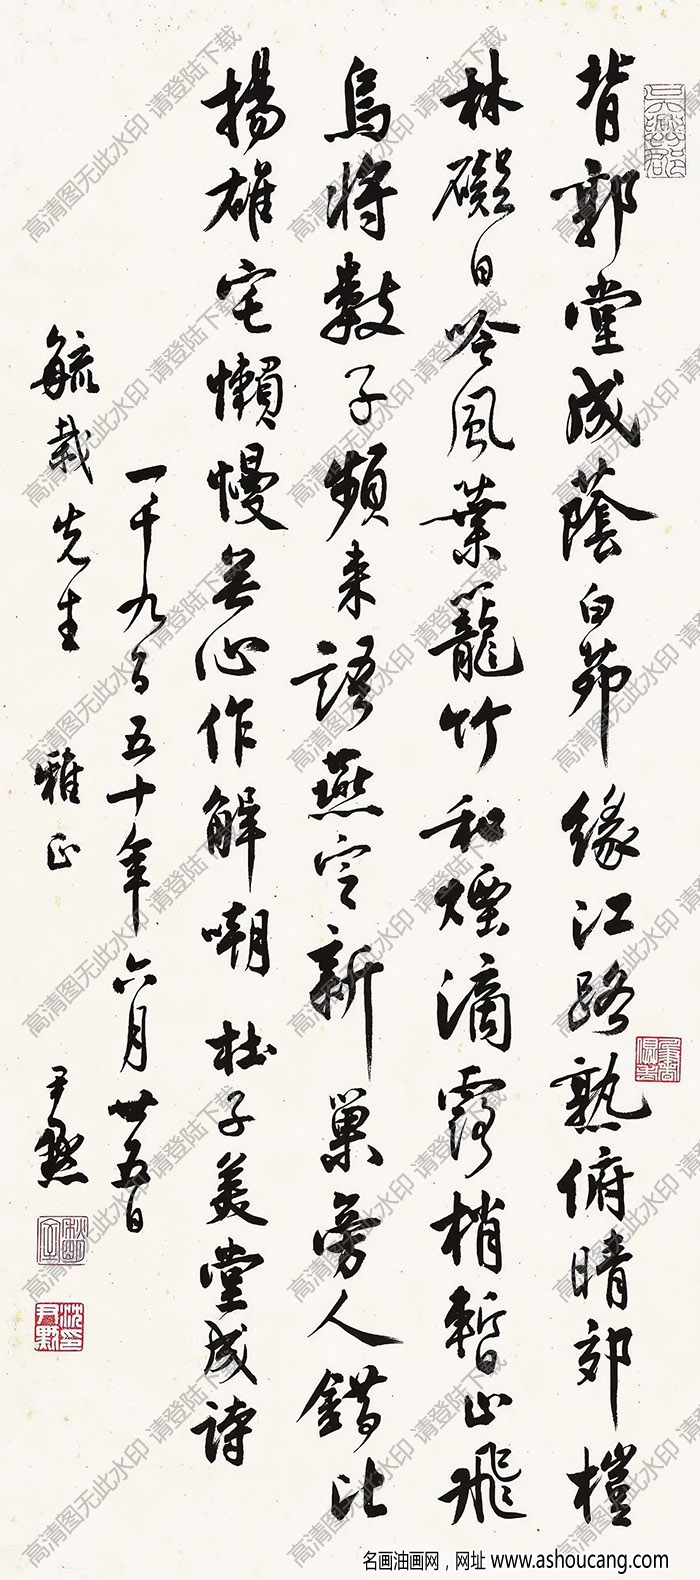 背郭堂成蔭白茆緣江路熟俯晴郊榿
林礙日唫風葉籠竹和煙滴露梢暫止飛
烏將數子頻來語燕定新巢旁人錯比
揚雄宅懶慢無心作解嘲 杜子美堂成詩
一千九百五十年六月廿五日
毓栽先生 雅正 尹默
沈尹默印
高清图无此水印 请登陆下载
名画油画网，网址 www.ashoucang.com